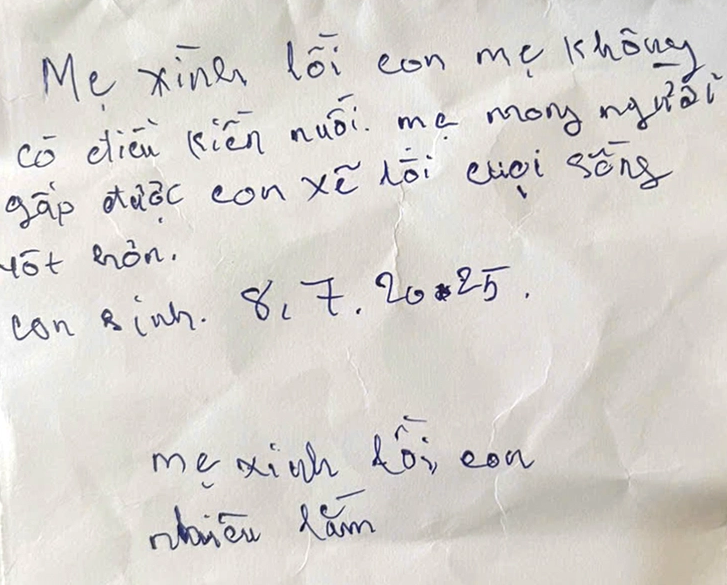 Mẹ xinh lỗi con mẹ không
có điều kiên nuôi. mẹ mong người
gấp được con xẽ lối cuọi sống
tốt hơn.
con sinh. 8, 7. 2025.
mẹ xinh lỗi, con
nhiêu lắm